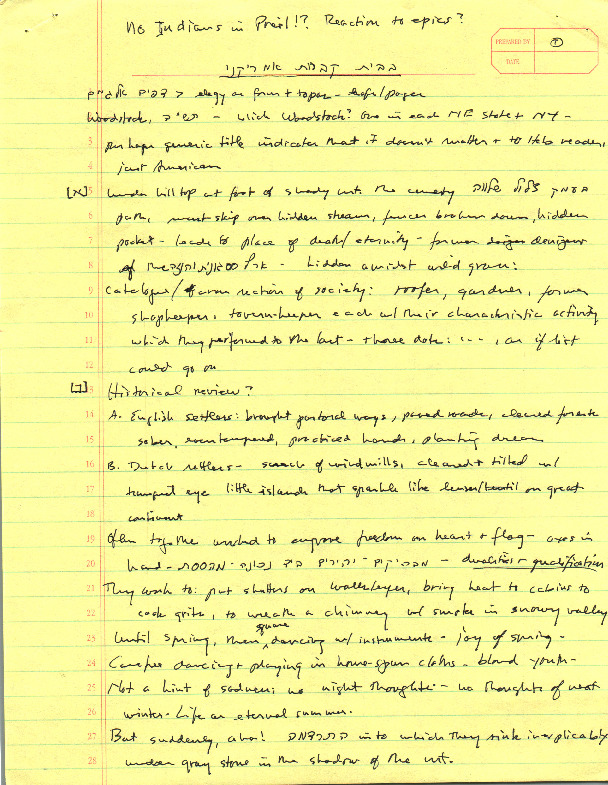 No Indians in Preil!? Reaction to epics?
PREPARED BY
DATE
בבית קברות אמריקני
elegy as form + topos -
Woodstock, - which Woodstock? One in each NE state + NY -
3 perhaps generic title indicates that it doesn't matter + to Heb reader,
4 just American
[א] 5 Under hilltop at foot of shady mts the cemetery צלול
6 path, must skip over hidden stream, fences broken down, hidden
7 pocket - leads to place of death/eternity - former denizens
8 of - hidden amidst wild grass:
9 Catalogue/ section of society: roofer, gardener, former
10 shopkeeper, tavern-keeper each w/ their characteristic activity
11 which they performed to the last - those dots: ..., as if list
12 could go on
[ב] 13 Historical review?
14 A. English settlers: brought pastoral ways, paved roads, cleared forests
15 sober, eventempered, practiced hands, planting dreams
16 B. Dutch settlers - of windmills, cleared + tilled w/
17 tranquil eye little islands that sparkle like on great
18 continent
19 Often together worked to engrave freedom on heart + flag - axes in
20 hand - dualities + qualification
21 They work to: put shutters on, bring heat to cabins to
22 cook grits, to wreath a chimney w/ smoke in snowy valley
23 Until spring, then square dancing w/ instruments - joy of spring -
24 Carefree dancing + playing in home-spun cloths - blond youth -
25 Not a hint of sadness: no night thoughts - no thoughts of next
26 winter. Life an eternal summer.
27 But suddenly, aha! into which they sink inexplicably
28 under gray stone in the shadow of the mt.